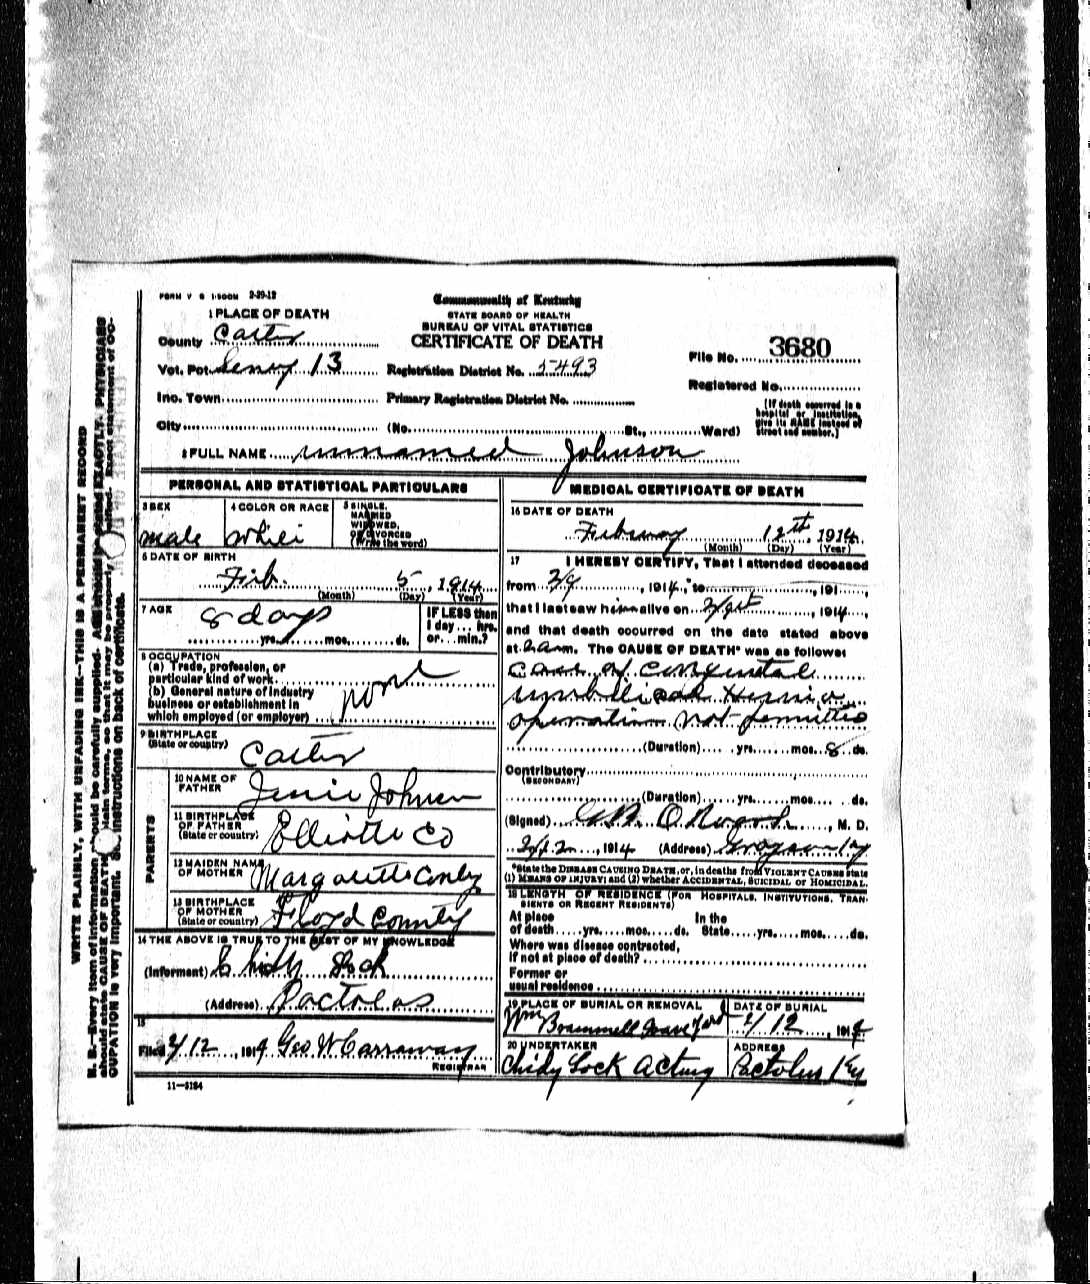 FORM V S 1-500M 2-20-12
Commonwealth of Kentucky
STATE BOARD OF HEALTH
BUREAU OF VITAL STATISTICS
CERTIFICATE OF DEATH
1 PLACE OF DEATH
County Carter
Vot. Pct. 13 Registration District No. 5493
File No. 3680
Registered No.
Inc. Town Primary Registration District No.
City (No. St., Ward)
[If death occurred in a hospital or institution, give its NAME instead of street and number.]
2 FULL NAME unnamed Johnson
PERSONAL AND STATISTICAL PARTICULARS
3 SEX
male
4 COLOR OR RACE
White
5 SINGLE, MARRIED WIDOWED, OR DIVORCED (Write the word)
6 DATE OF BIRTH
Feb. 5, 1914
(Month) (Day) (Year)
7 AGE
8 days
yrs. mos. ds.
IF LESS than 1 day... hrs. or... min.?
8 OCCUPATION
(a) Trade, profession, or particular kind of work
(b) General nature of industry business or establishment in which employed (or employer)
none
9 BIRTHPLACE
(State or country)
Carter
PARENTS
10 NAME OF FATHER
Johnson
11 BIRTHPLACE OF FATHER
(State or country)
Elliotte Co
12 MAIDEN NAME OF MOTHER
Margarette Conly
13 BIRTHPLACE OF MOTHER
(State or country)
Floyd County
14 THE ABOVE IS TRUE TO THE BEST OF MY KNOWLEDGE
(Informant) Lock
(Address) Pactolas
15
Filed 2/12, 1914 Geo W Carraway
REGISTRAR
11—5184
MEDICAL CERTIFICATE OF DEATH
16 DATE OF DEATH
February 12th, 1914
(Month) (Day) (Year)
17 I HEREBY CERTIFY, That I attended deceased
from 2/9, 1914, to , 191 ,
that I last saw him alive on , 1914,
and that death occurred on the date stated above
at m. The CAUSE OF DEATH* was as follows:
case of congenital
umbilical Hernia
operation not permitted
(Duration) yrs. mos. 8 ds.
Contributory
(SECONDARY)
(Duration) yrs. mos. ds.
(Signed) , M. D.
, 1914 (Address) Grayson Ky
*State the DISEASE CAUSING DEATH, or, in deaths from VIOLENT CAUSES state (1) MEANS OF INJURY; and (2) whether ACCIDENTAL, SUICIDAL or HOMICIDAL.
18 LENGTH OF RESIDENCE (FOR HOSPITALS, INSTITUTIONS, TRANSIENTS OR RECENT RESIDENTS)
At place of death yrs. mos. ds. In the State yrs. mos. ds.
Where was disease contracted, if not at place of death?
Former or usual residence
19 PLACE OF BURIAL OR REMOVAL
Wm Brammell Grave Yard
DATE OF BURIAL
2/12, 1914
20 UNDERTAKER
Chidy Lock Acting
ADDRESS
Pactolus Ky
WRITE PLAINLY, WITH UNFADING INK—THIS IS A PERMANENT RECORD
N. B.—Every item of information should be carefully supplied. AGE should be stated EXACTLY. PHYSICIANS
should state CAUSE OF DEATH in plain terms, so that it may be properly classified. Exact statement of OC-
CUPATION is very important. See instructions on back of certificate.